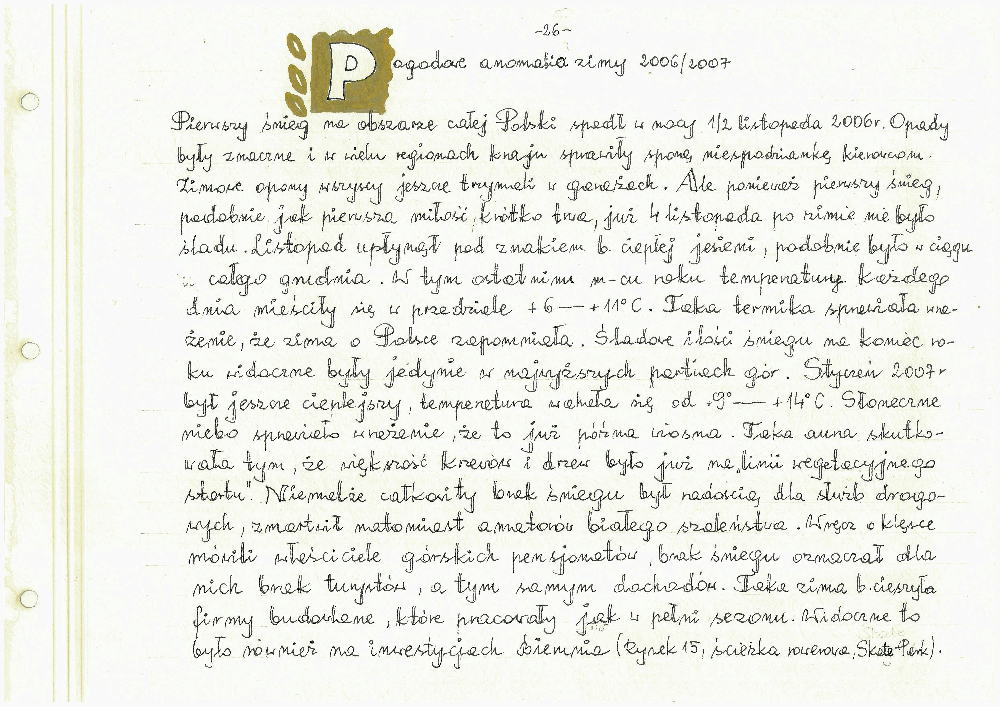 -26-
Pogodowe anomalia zimy 2006/2007
Pierwszy śnieg na obszarze całej Polski spadł w nocy 1/2 listopada 2006r. Opady
były znaczne i w wielu regionach kraju sprawiły sporą niespodziankę kierowcom.
Zimowe opony wszyscy jeszcze trzymali w garażach. Ale ponieważ pierwszy śnieg,
podobnie jak pierwsza miłość, krótko trwa, już 4 listopada po zimie nie było
śladu. Listopad upłynął pod znakiem b. ciepłej jesieni, podobnie było w ciągu
całego grudnia. W tym ostatnim m-cu roku temperatury każdego
dnia mieściły się w przedziale +6 — +11°C. Taka termika sprawiała wra-
żenie, że zima o Polsce zapomniała. Śladowe ilości śniegu na koniec ro-
ku widoczne były jedynie w najwyższych partiach gór. Styczeń 2007r
był jeszcze cieplejszy, temperatura wahała się od +9° — +14°C. Słoneczne
niebo sprawiało wrażenie, że to już późna wiosna. Taka aura skutko-
wała tym, że większość krzewów i drzew było już na „linii wegetacyjnego
startu". Niemalże całkowity brak śniegu był radością dla służb drogo-
wych, zmartwił natomiast amatorów białego szaleństwa. Wręcz o klęsce
mówili właściciele górskich pensjonatów, brak śniegu oznaczał dla
nich brak turystów, a tym samym dochodów. Taka zima b. cieszyła
firmy budowlane, które pracowały jak w pełni sezonu. Widoczne to
było również na inwestycjach Bierunia (Rynek 15, ścieżka rowerowa, Skate-Park).